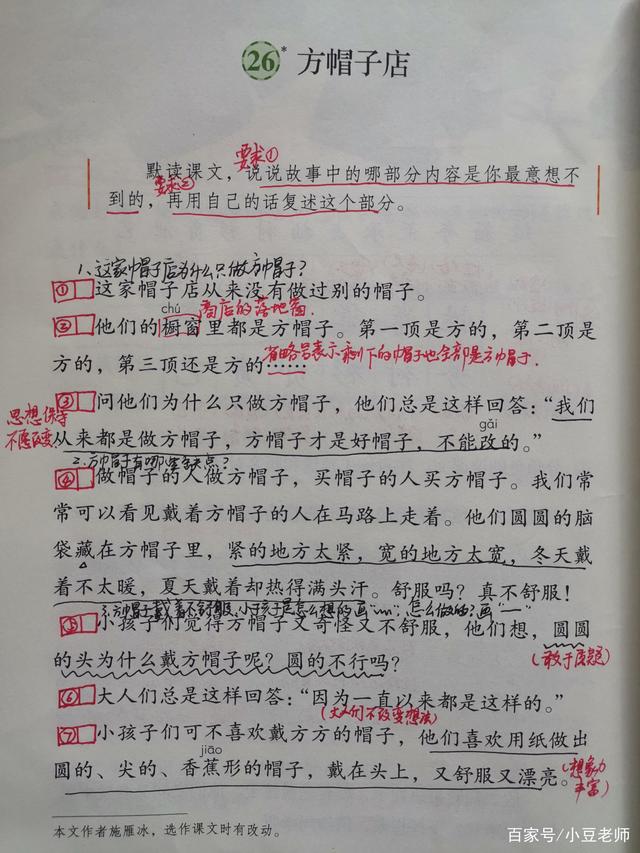 26* 方帽子店
要求①
默读课文，说说故事中的哪部分内容是你最意想不
要求②
到的，再用自己的话复述这个部分。
1、这家帽子店为什么只做方帽子？
① 这家帽子店从来没有做过别的帽子。
chú
商店的落地窗.
② 他们的橱窗里都是方帽子。第一顶是方的，第二顶是
方的，第三顶还是方的……
省略号表示剩下的帽子也全部是方帽子.
③ 问他们为什么只做方帽子，他们总是这样回答：“我们
思想保守
不愿改变
gǎi
从来都是做方帽子，方帽子才是好帽子，不能改的。”
2、方帽子有哪些缺点？
④ 做帽子的人做方帽子，买帽子的人买方帽子。我们常
常可以看见戴着方帽子的人在马路上走着。他们圆圆的脑
袋藏在方帽子里，紧的地方太紧，宽的地方太宽，冬天戴
着不太暖，夏天戴着却热得满头汗。舒服吗？真不舒服！
3、方帽子戴着不舒服，小孩子是怎么想的画“﹏”，怎么做的？画“—”
⑤ 小孩子们觉得方帽子又奇怪又不舒服，他们想，圆圆
的头为什么戴方帽子呢？圆的不行吗？
（敢于质疑）
⑥ 大人们总是这样回答：“因为一直以来都是这样的。”
（大人们不改变想法）
⑦ 小孩子们可不喜欢戴方方的帽子，他们喜欢用纸做出
jiāo
圆的、尖的、香蕉形的帽子，戴在头上，又舒服又漂亮。
（想象力
丰富）
本文作者施雁冰，选作课文时有改动。
百家号/小豆老师